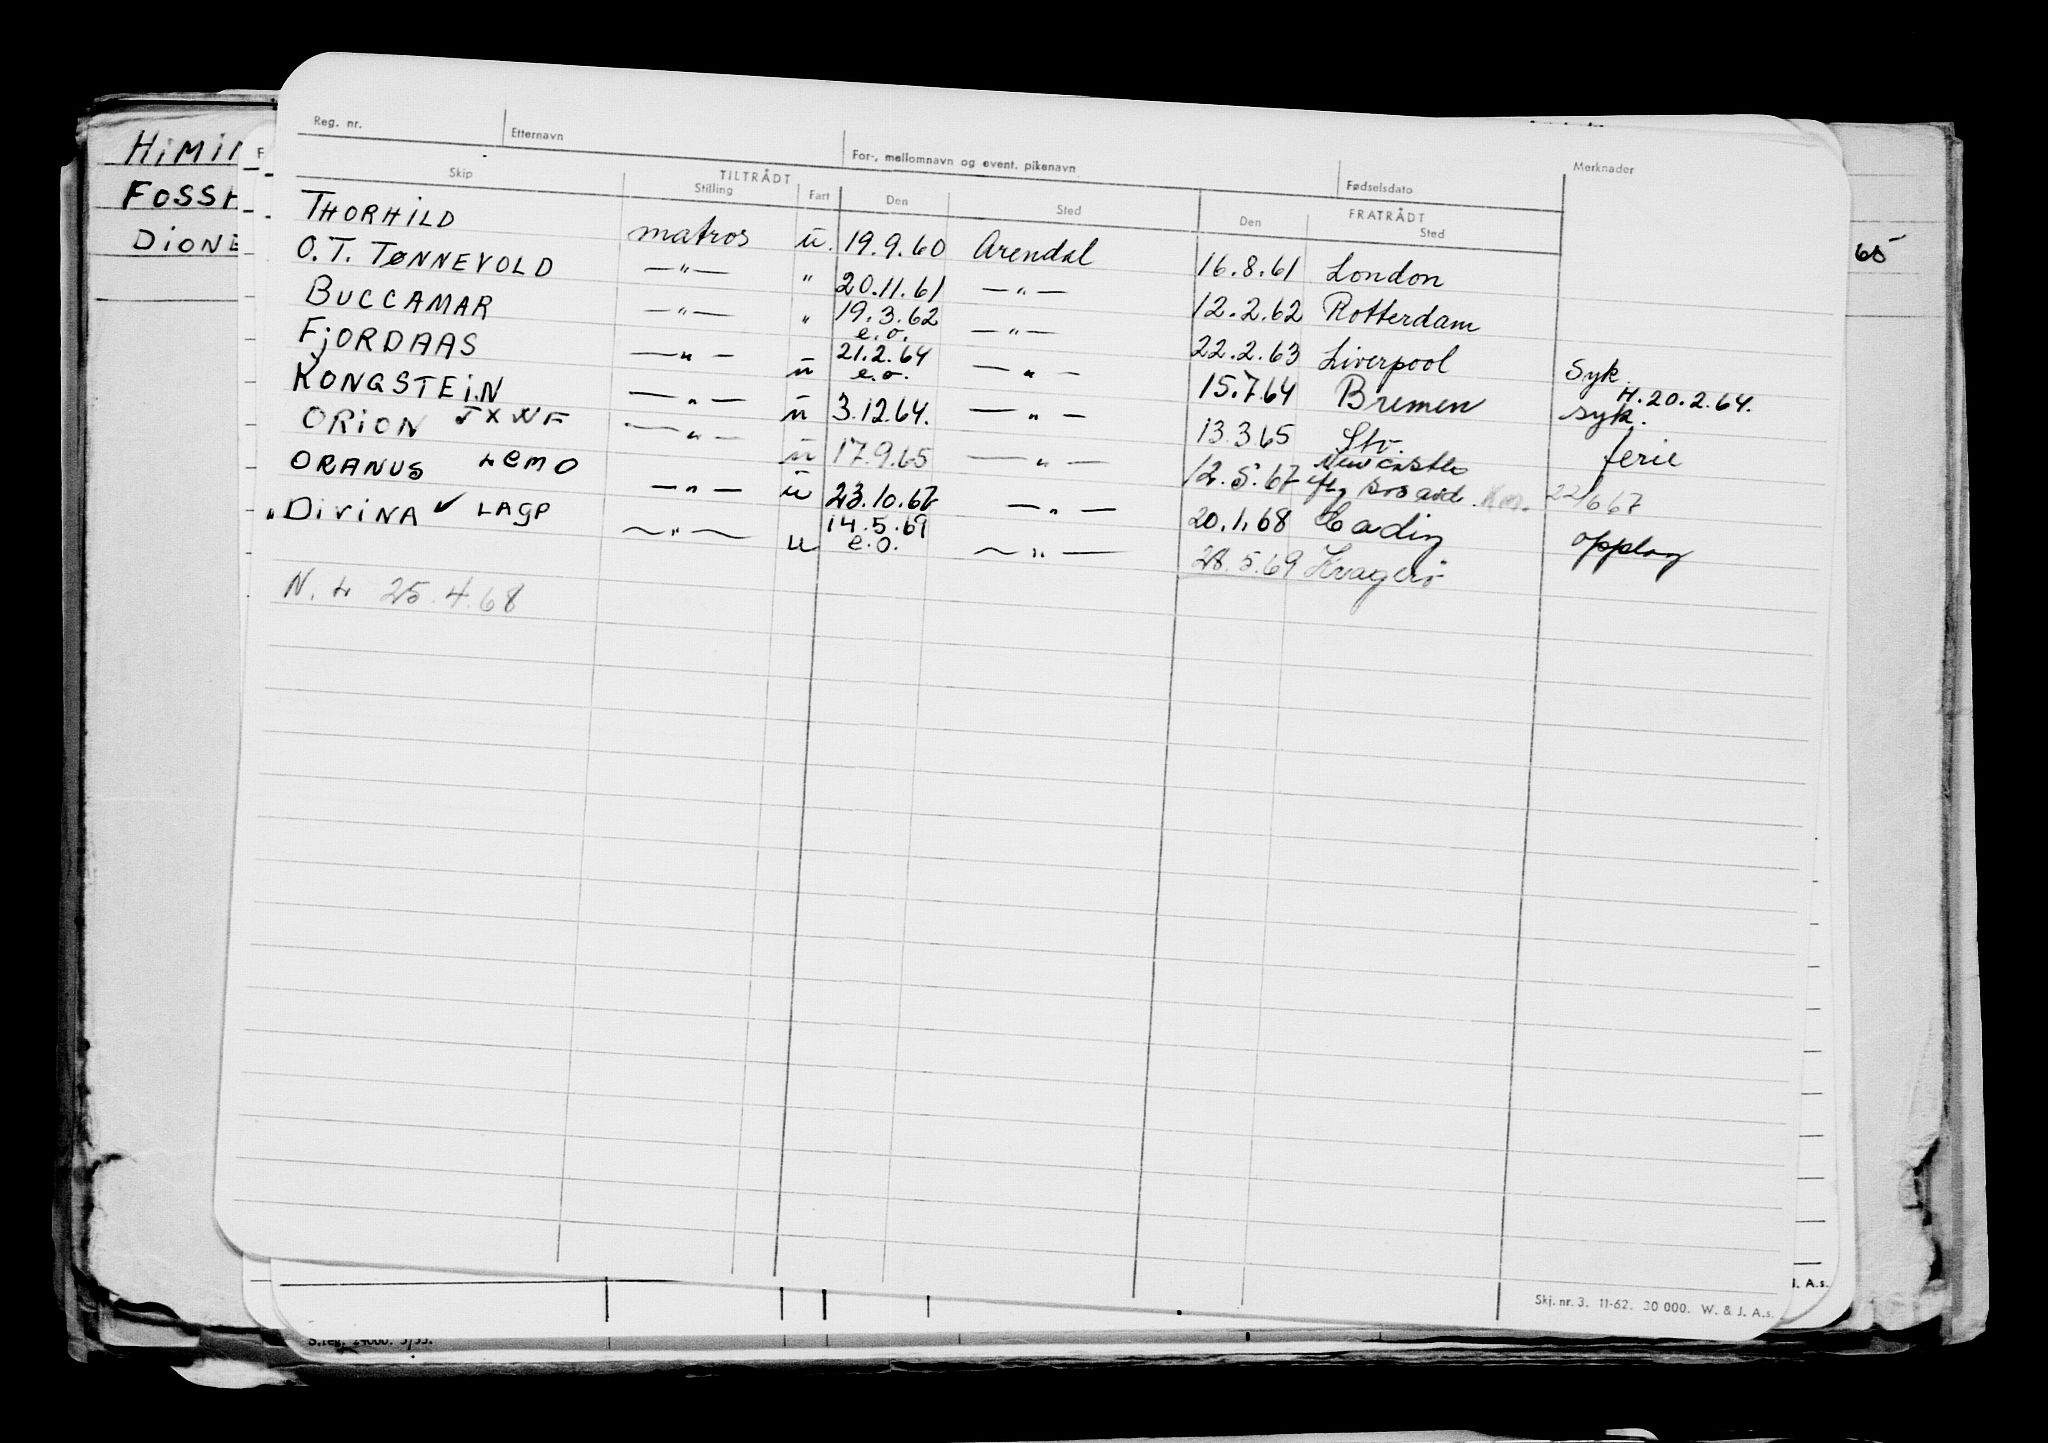 Reg. nr. Etternavn For-, mellomnavn og event. pikenavn Fødselsdato Merknader
TILTRÅDT FRATRÅDT
Skip Stilling Fart Den Sted Den Sted
THORHILD matros u. 19.9.60 Arendal 16.8.61 London
O.T. TØNNEVOLD —"— " 20.11.61 —"— 12.2.62 Rotterdam
BUCCAMAR —"— " 19.3.62 e.o. —"— 22.2.63 Liverpool Syk. H.20.2.64.
FjORDAAS —"— u 21.2.64 e.o. —"— 15.7.64 Bremen syk.
KONGSTEiN —"— u 3.12.64. —"— 13.3.65 Stv. ferie
ORiON JXWF —"— u 17.9.65 —"— 12.5.67 Newcastle 22/6 67
ORANUS LEMO —"— u 23.10.67 —"— 20.1.68 opplag
DiVINA ✓ LAGP —"— u 14.5.69 e.o. —"— 28.5.69 Kragerö
N. L 25.4.68
HiMiN
FOSSH
DiONE
65
Skj. nr. 3. 11-62. 30 000. W. & J. A.s.
J. A.s.
S.reg. 24000. 5/55.